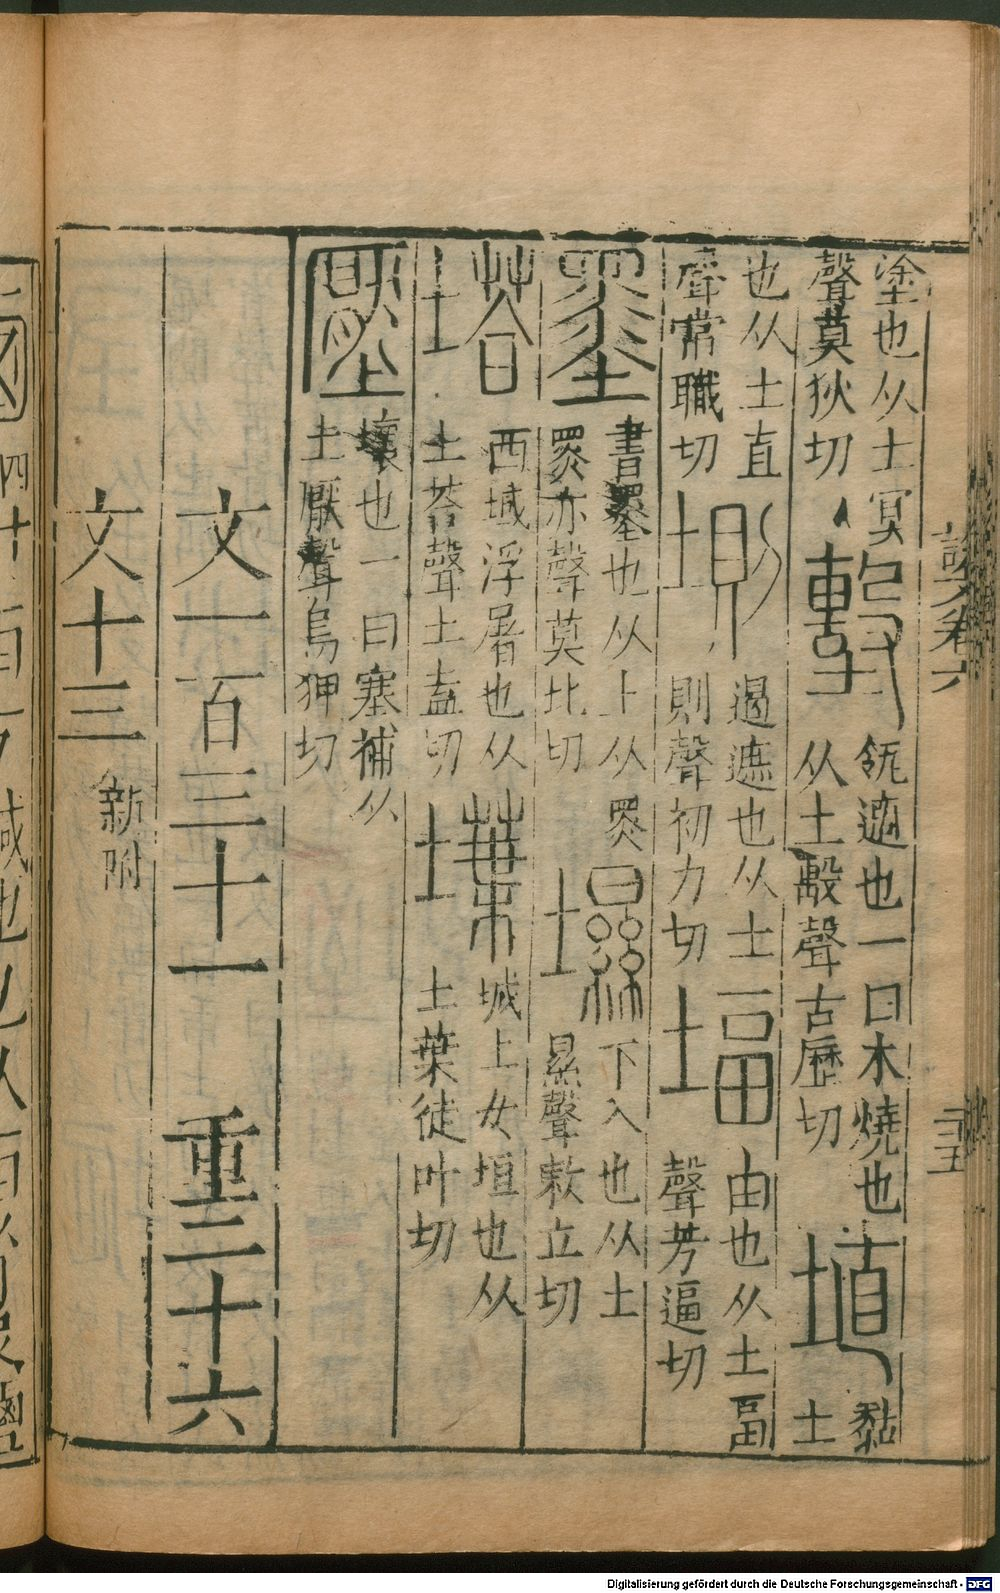 塗也从土冥
聲莫狄切
墼
瓴適也一曰木燒也
从土毄聲古歷切
埴
黏
土
也从土直
聲常職切
遏遮也从土
則聲初力切
堛
由也从土畐
聲芳逼切
墨
書墨也从土从黑
黑亦聲莫北切
㙷
下入也从土
㬎聲敕立切
塔
西域浮屠也从
土荅聲土盍切
堞
城上女垣也从
土葉徒叶切
壓
壞也一曰塞補从
土厭聲烏狎切
文一百三十一 重二十六
文十三 新附
Digitalisierung gefördert durch die Deutsche Forschungsgemeinschaft - DFG